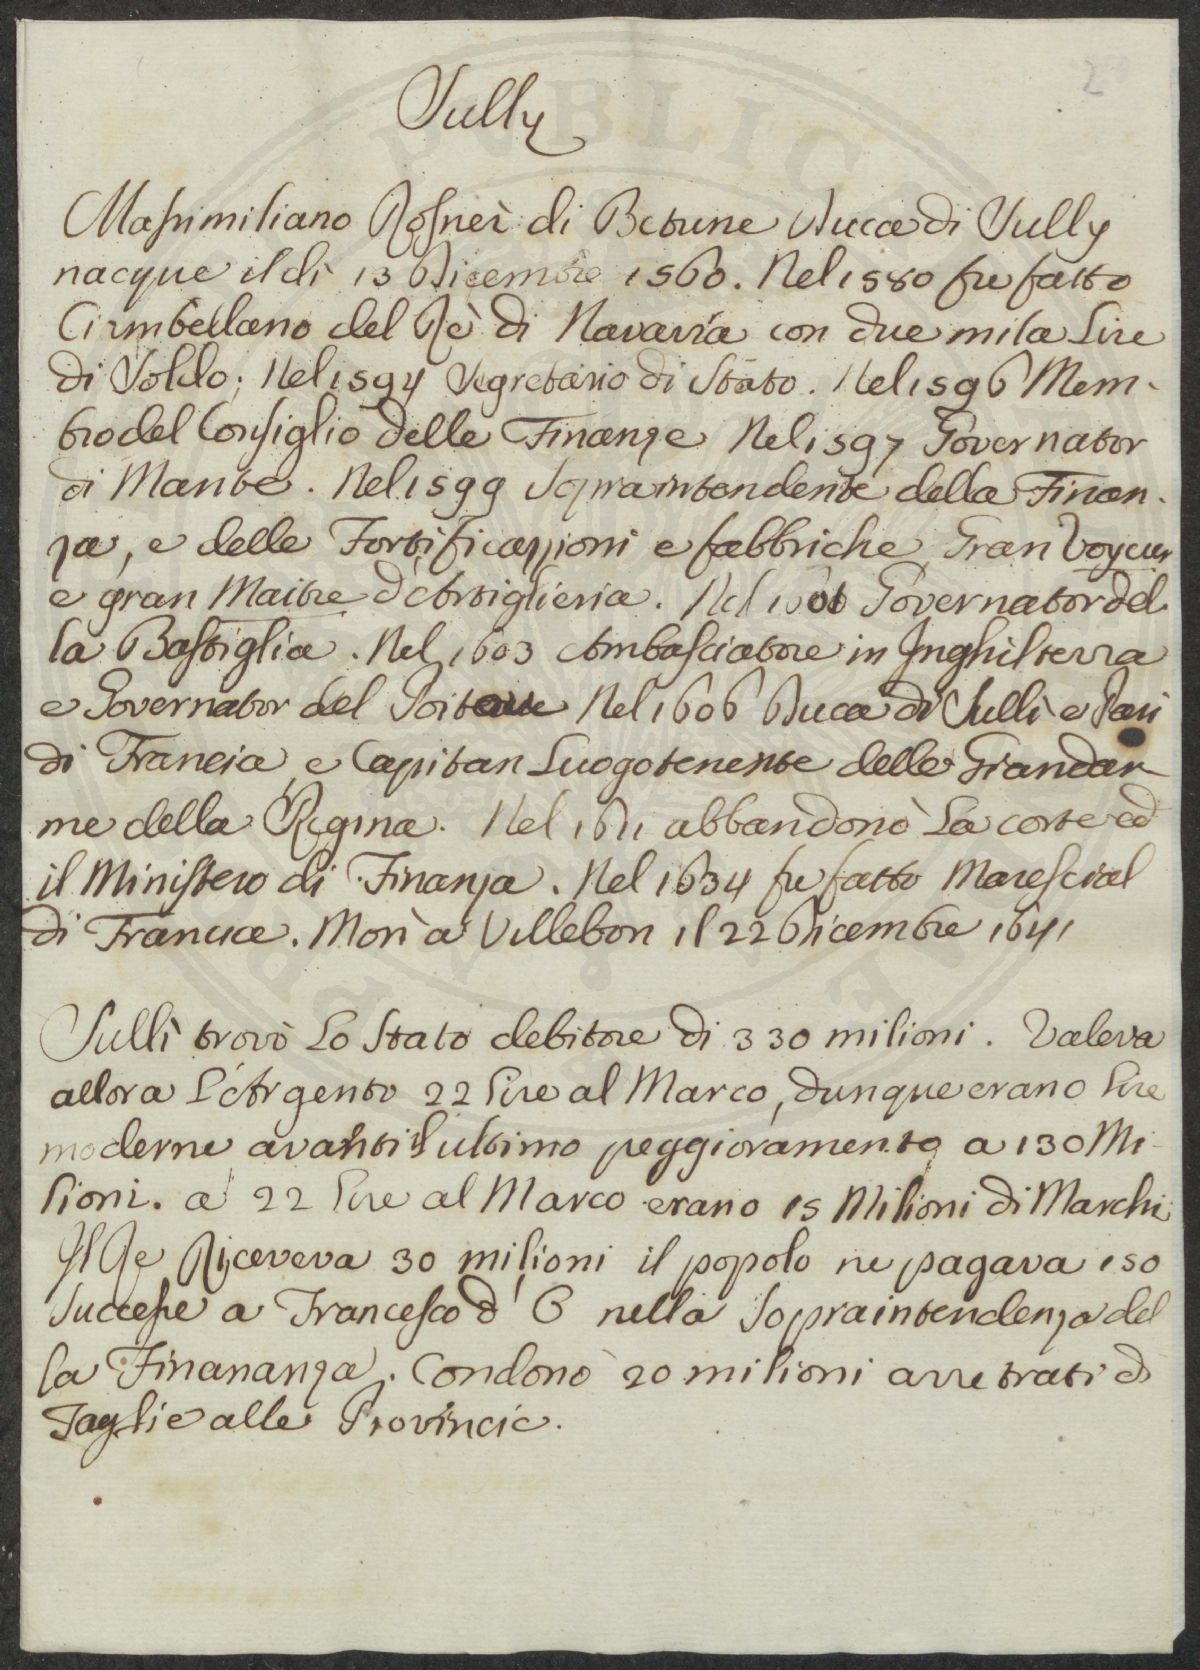 2
Sully
Massimiliano Rosnei di Betune Ducca di Sully
nacque il di 13 Dicembre 1560. Nel 1580 fu fatto
Ciambellano del Rè di Navarra con due mila Lire
di Soldo; Nel 1594 Segretario di Stato. Nel 1596 Mem-
bro del Consiglio delle Finanze Nel 1597 Governator
di Mante. Nel 1599 Sopraintendente della Finan-
za, e delle Fortificazzioni e fabbriche Gran Voyeur
e gran Maitre d'Artiglieria. Nel Governator del
la Bastiglia. Nel 1603 Ambasciatore in Inghilterra
e Governator del Nel 1606 Duca di Sulli e Pari
di Francia, e Capitan Luogotenente delle Giandar-
me della Regina. Nel 1611 abbandonò La corte ed
il Ministero di Finanza. Nel 1634 fu fatto Marescial
di Francia. Morì a Villebon il 22 Dicembre 1641
Sulli trovò Lo Stato debitore di 330 milioni. Valeva
allora L'Argento 22 Lire al Marco, dunque erano Lire
moderne avanti l'ultimo peggioramento a 130 Mi-
lioni. a 22 Lire al Marco erano 15 Milioni di Marchi
Il Re Riceveva 30 milioni il popolo ne pagava 150
Successe a Francesco d'O nella Sopraintendenza del
la Finananza. Condonò 20 milioni arretrati di
Taglie alle Provincie.